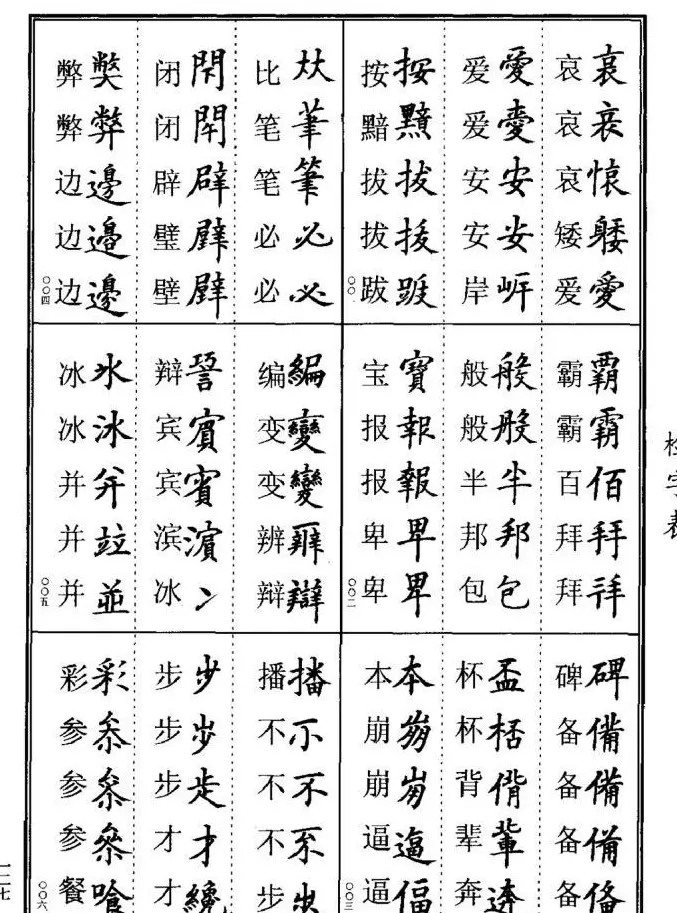 检字表
哀哀㤅躷愛
哀哀哀矮爱
愛愛安安岍
爱爱安安岸
按黯拔拔跋
按黯拔拔跋
〇〇一
霸霸佰拜拝
霸霸百拜拜
般般半邦包
般般半邦包
寶報報卑卑
宝报报卑卑
〇〇二
碑備備備俻
碑备备备备
盃桮偝輩逩
杯杯背辈奔
本崩崩逼偪
本崩崩逼逼
〇〇三
筆筆必必
比笔笔必必
閇閉辟壁
闭闭辟璧壁
獘弊邊邊邊
弊弊边边边
〇〇四
編變變辨辯
编变变辨辩
賓賓濵冫
辩宾宾滨冰
氷冰并竝並
冰冰并并并
〇〇五
播不不
播不不不步
步歩才纔
步步步才才
彩叅喰
彩参参参餐
〇〇六
一一七